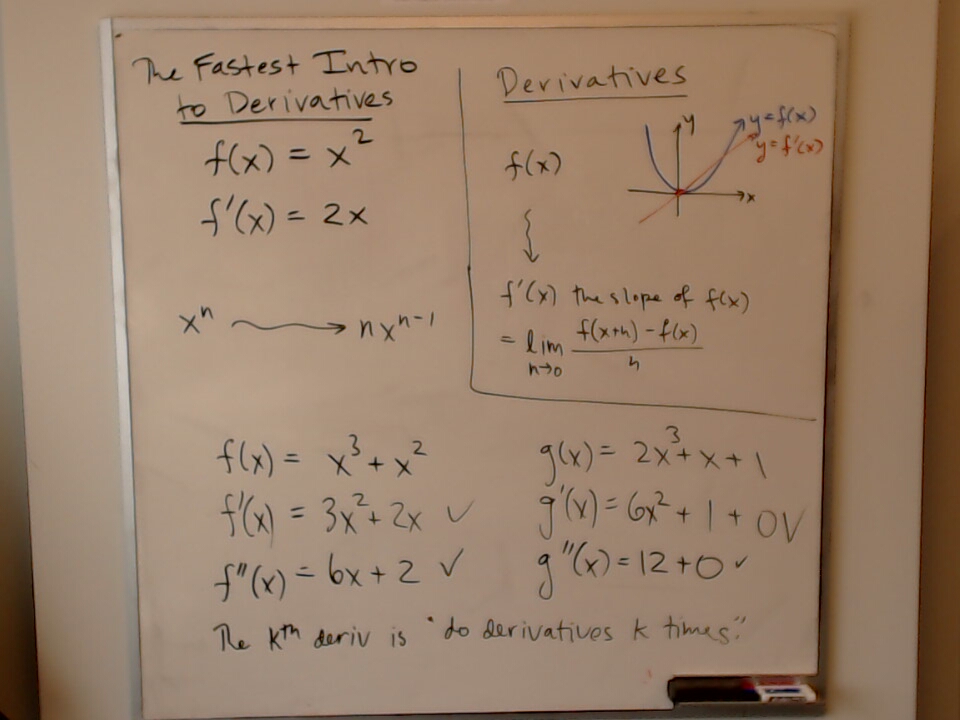 The Fastest Intro
to Derivatives
f(x) = x²
f'(x) = 2x
xⁿ ⟶ nxⁿ⁻¹
Derivatives
f(x)
y
y=f(x)
y=f'(x)
x
f'(x) the slope of f(x)
= lim f(x+h) - f(x)
h→0 h
f(x) = x³ + x²
f'(x) = 3x² + 2x ✓
f''(x) = 6x + 2 ✓
g(x) = 2x³ + x + 1
g'(x) = 6x² + 1 + 0 ✓
g''(x) = 12 + 0 ✓
The kᵗʰ deriv is "do derivatives k times."